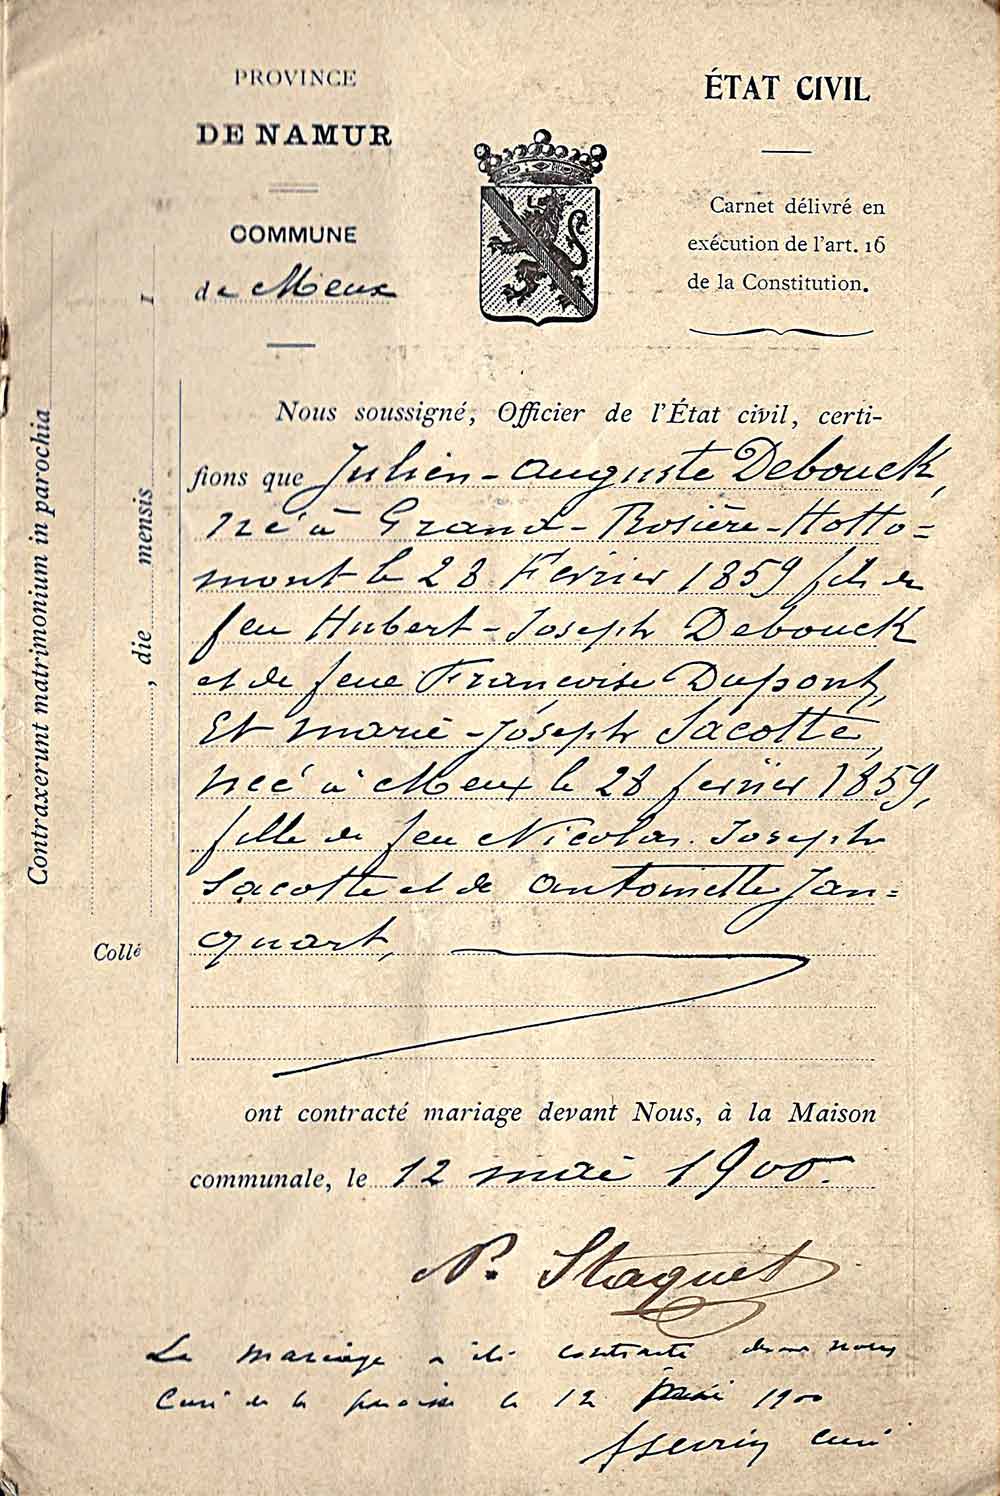 PROVINCE
DE NAMUR
COMMUNE
de Meux
ÉTAT CIVIL
Carnet délivré en
exécution de l'art. 16
de la Constitution.
Contraxerunt matrimonium in parochia
, die mensis 1
Collé
Nous soussigné, Officier de l'État civil, certi-
fions que Julien-Auguste Debouck,
né à Grand-Rosière-Hotto=
mont le 28 Février 1859 fils de
feu Hubert-Joseph Debouck
et de feue Françoise Dupont,
Et Marie-Joseph Lacotte,
née à Meux le 28 février 1859,
fille de feu Nicolas-Joseph
Lacotte et de Antoinette Jan=
quart,
ont contracté mariage devant Nous, à la Maison
communale, le 12 mai 1900.
N. Staquet
Le mariage a été contracté devant nous
Curé de la paroisse le 12 1900
curé